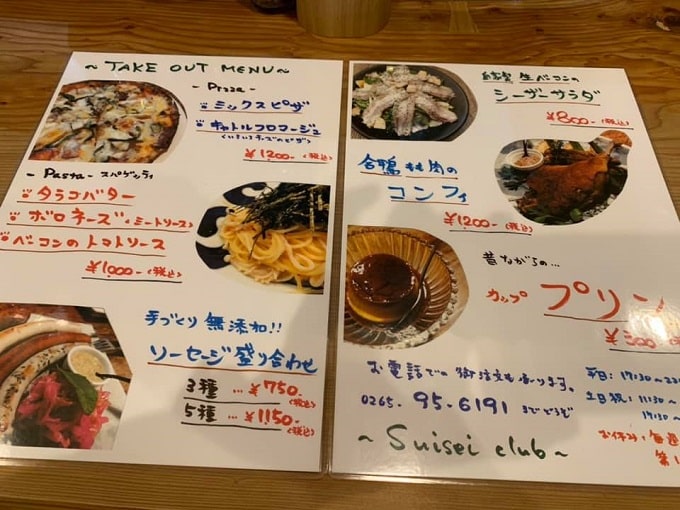 ~ TAKE OUT MENU ~
- Pizza -
ミックスピザ
キャトルフロマージュ
<いろいろチーズのピザ>
¥1200- <税込>
- Pasta - スパゲッティ
タラコバター
ボロネーズ <ミートソース>
ベーコンのトマトソース
¥1,000- <税込>
手づくり 無添加!!
ソーセージ盛り合わせ
3種 … ¥750- <税込>
5種 … ¥1,150- <税込>
自家製 生ベーコンの
シーザーサラダ
¥800- <税込>
合鴨もも肉の
コンフィ
¥1200- <税込>
昔ながらの…
カップ プリン
¥300
お電話での御注文も承ります。
0265-95-6191 までどうぞ
平日: 17:30~22
土日祝: 11:30~
17:30~
お休み: 毎週
第1
~ Suisei club ~